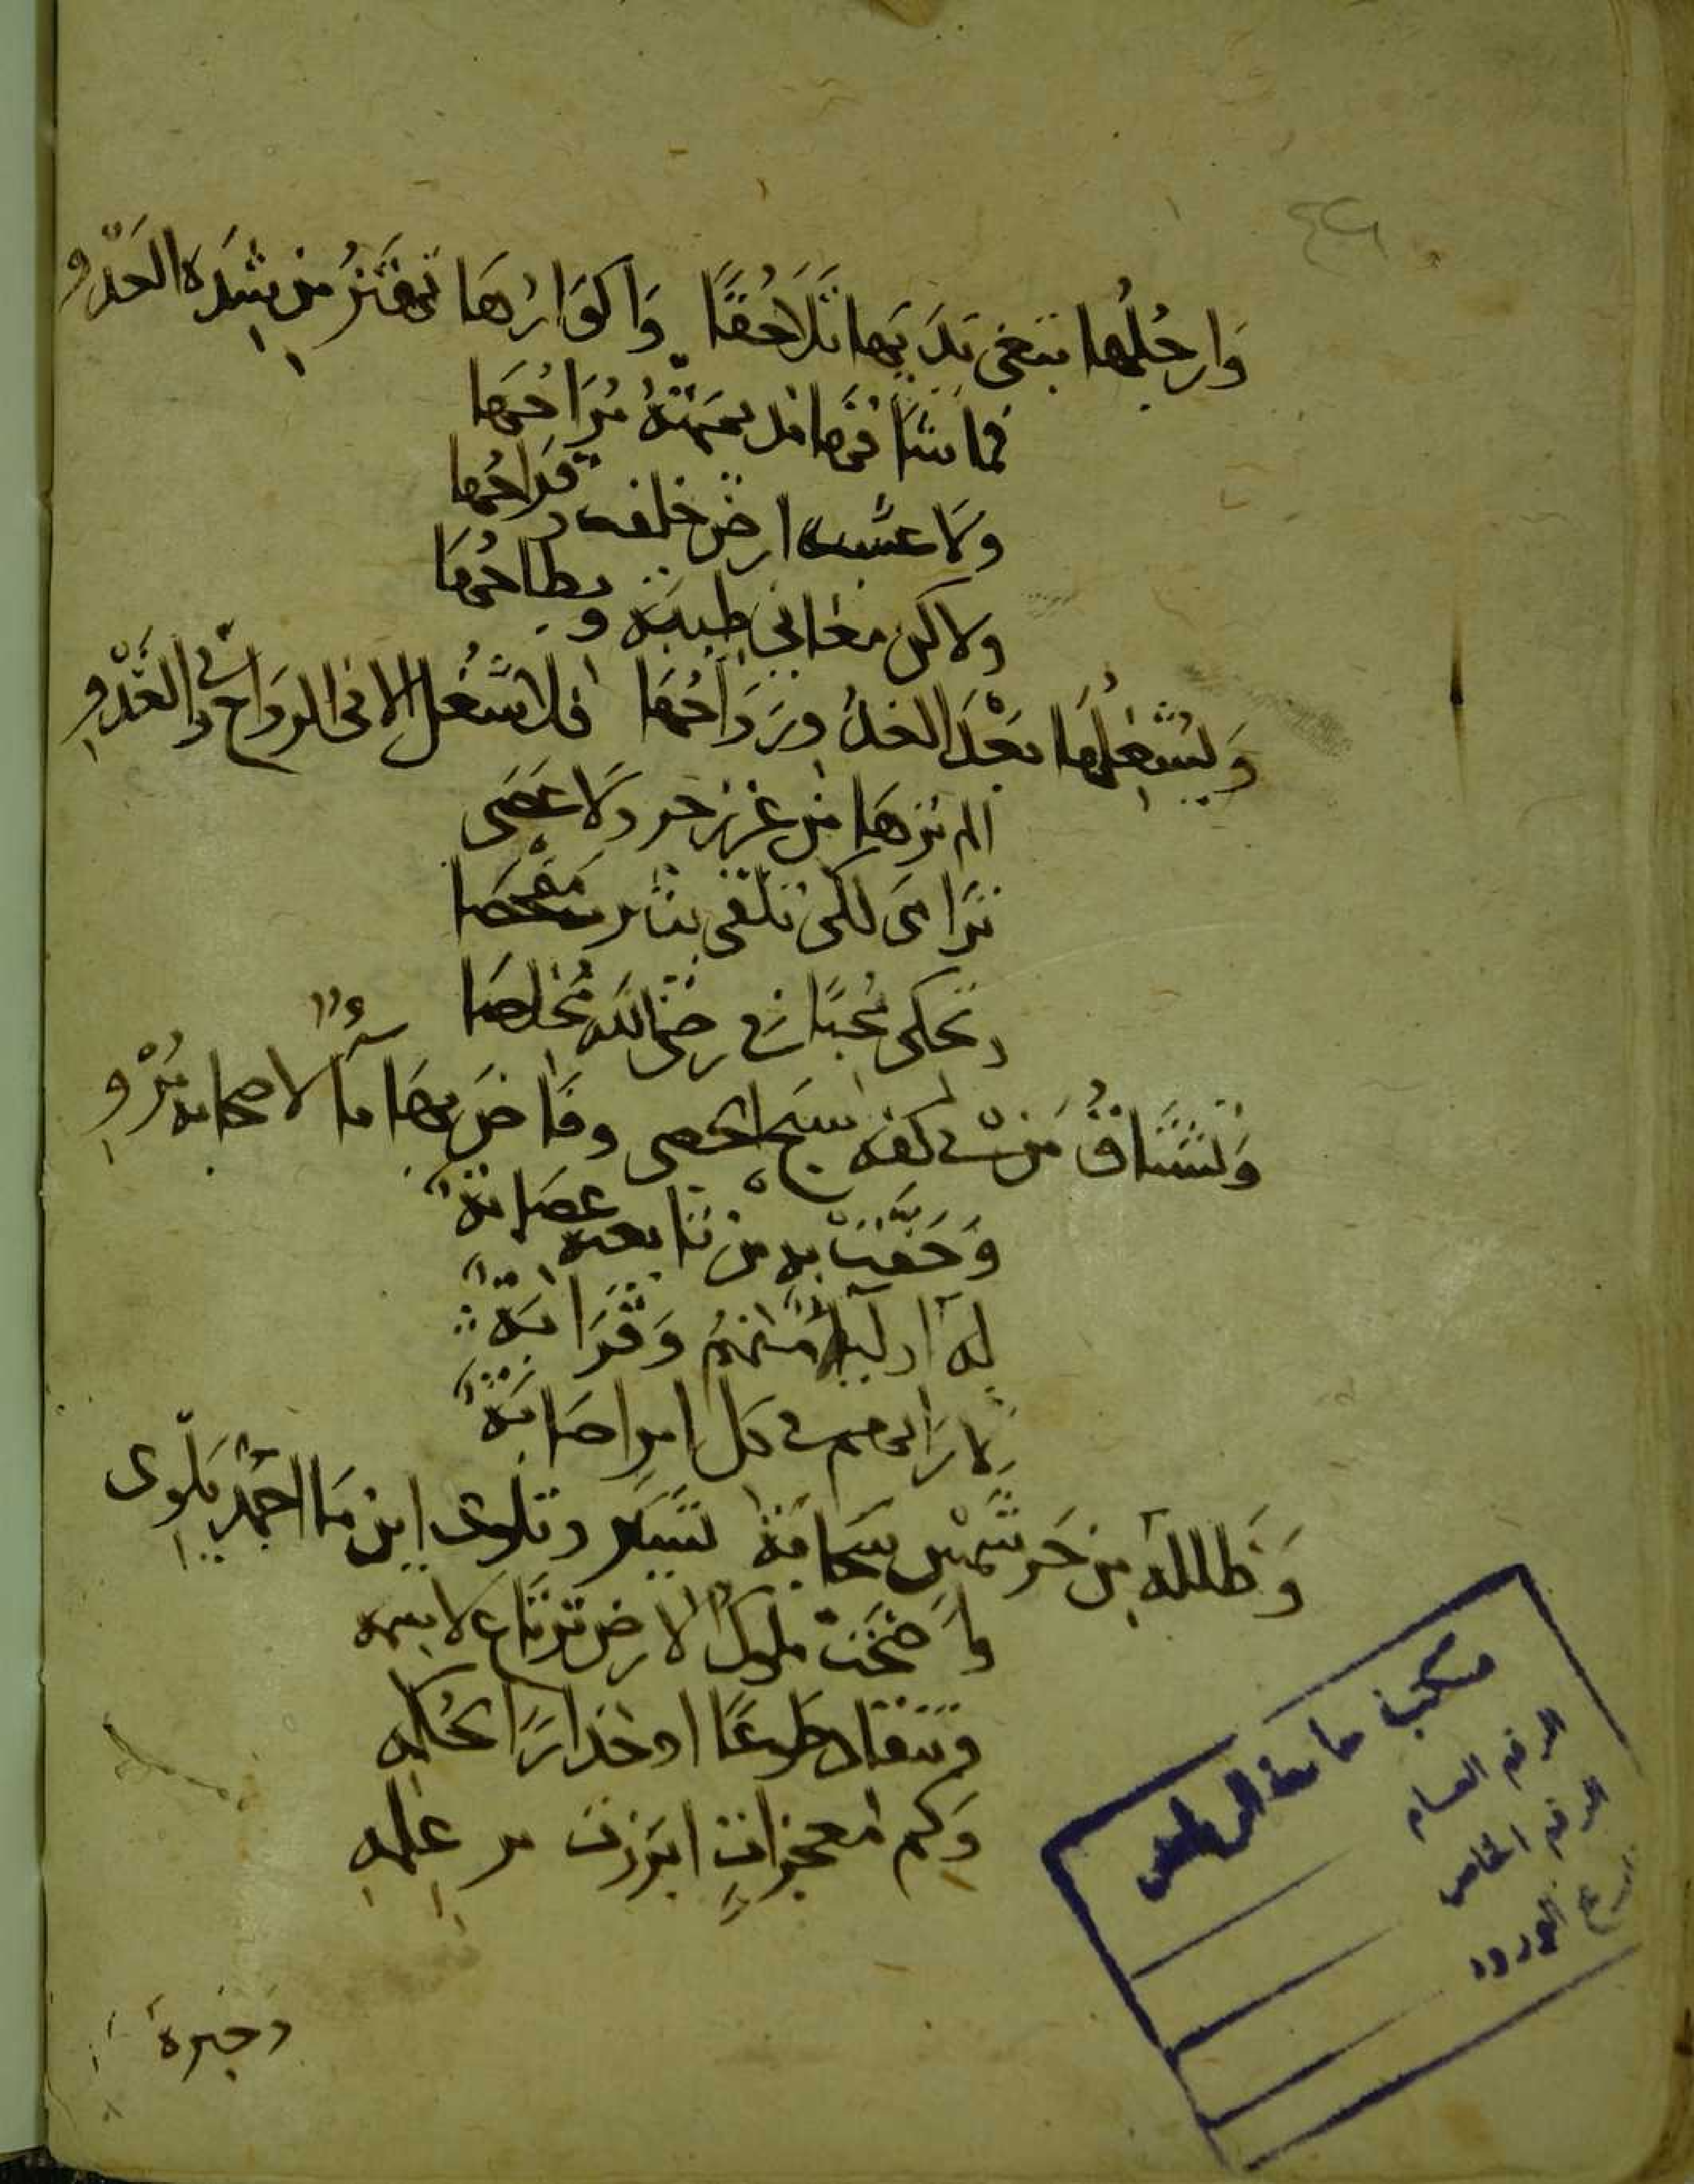 ٤٦
وَارجُلُها تبتغى يَدَيها تَلَاحُقًا وَاكوَارُهَا تهتَزُ من شِدَة العَدْو
فما شَاقَها مراحُهَا
وَلَا عشبه ارض خلفه قراحُها
ولاكن مغانى طيبة وبطاحُهَا
وَيشغلُهَا بَعْدَ الغدُو رَوَاحُهَا فلا شُغل الا فى الروَاح وفى الغَدْو
الم ترهَا من غرز حر وَلَا عَصَى
تَرَامَى لكى تلقى بيثرب مَفحصَا
وتحكى مُحبًا فى رضى الله مُخلصَا
وَتشتَاقُ مَن فى كفه سبح الحصى وفَاضَ بهَا مآءً لاصحابه مُرْوِ
وَحَفَّت به من تَابعيه عصَابَة
له اوليآء مِنهُمُ وَقَرَابَة
لارَائهم فى كل امر اصَابَة
وَظلله من حَر شَمْس سَحَابَة تَسِير وتلوى اين مَا احمَد يَلوى
وَاضحَت ملوك الارض ترتَاع لاسمه
وتنقاد طوعًا او حذارًا لحُكمه
وَكم معجزات ابرَزت من علمه
وخبره
مكتبة جامعة الرياض
الرقم العام
الرقم الخاص
تاريخ الورود